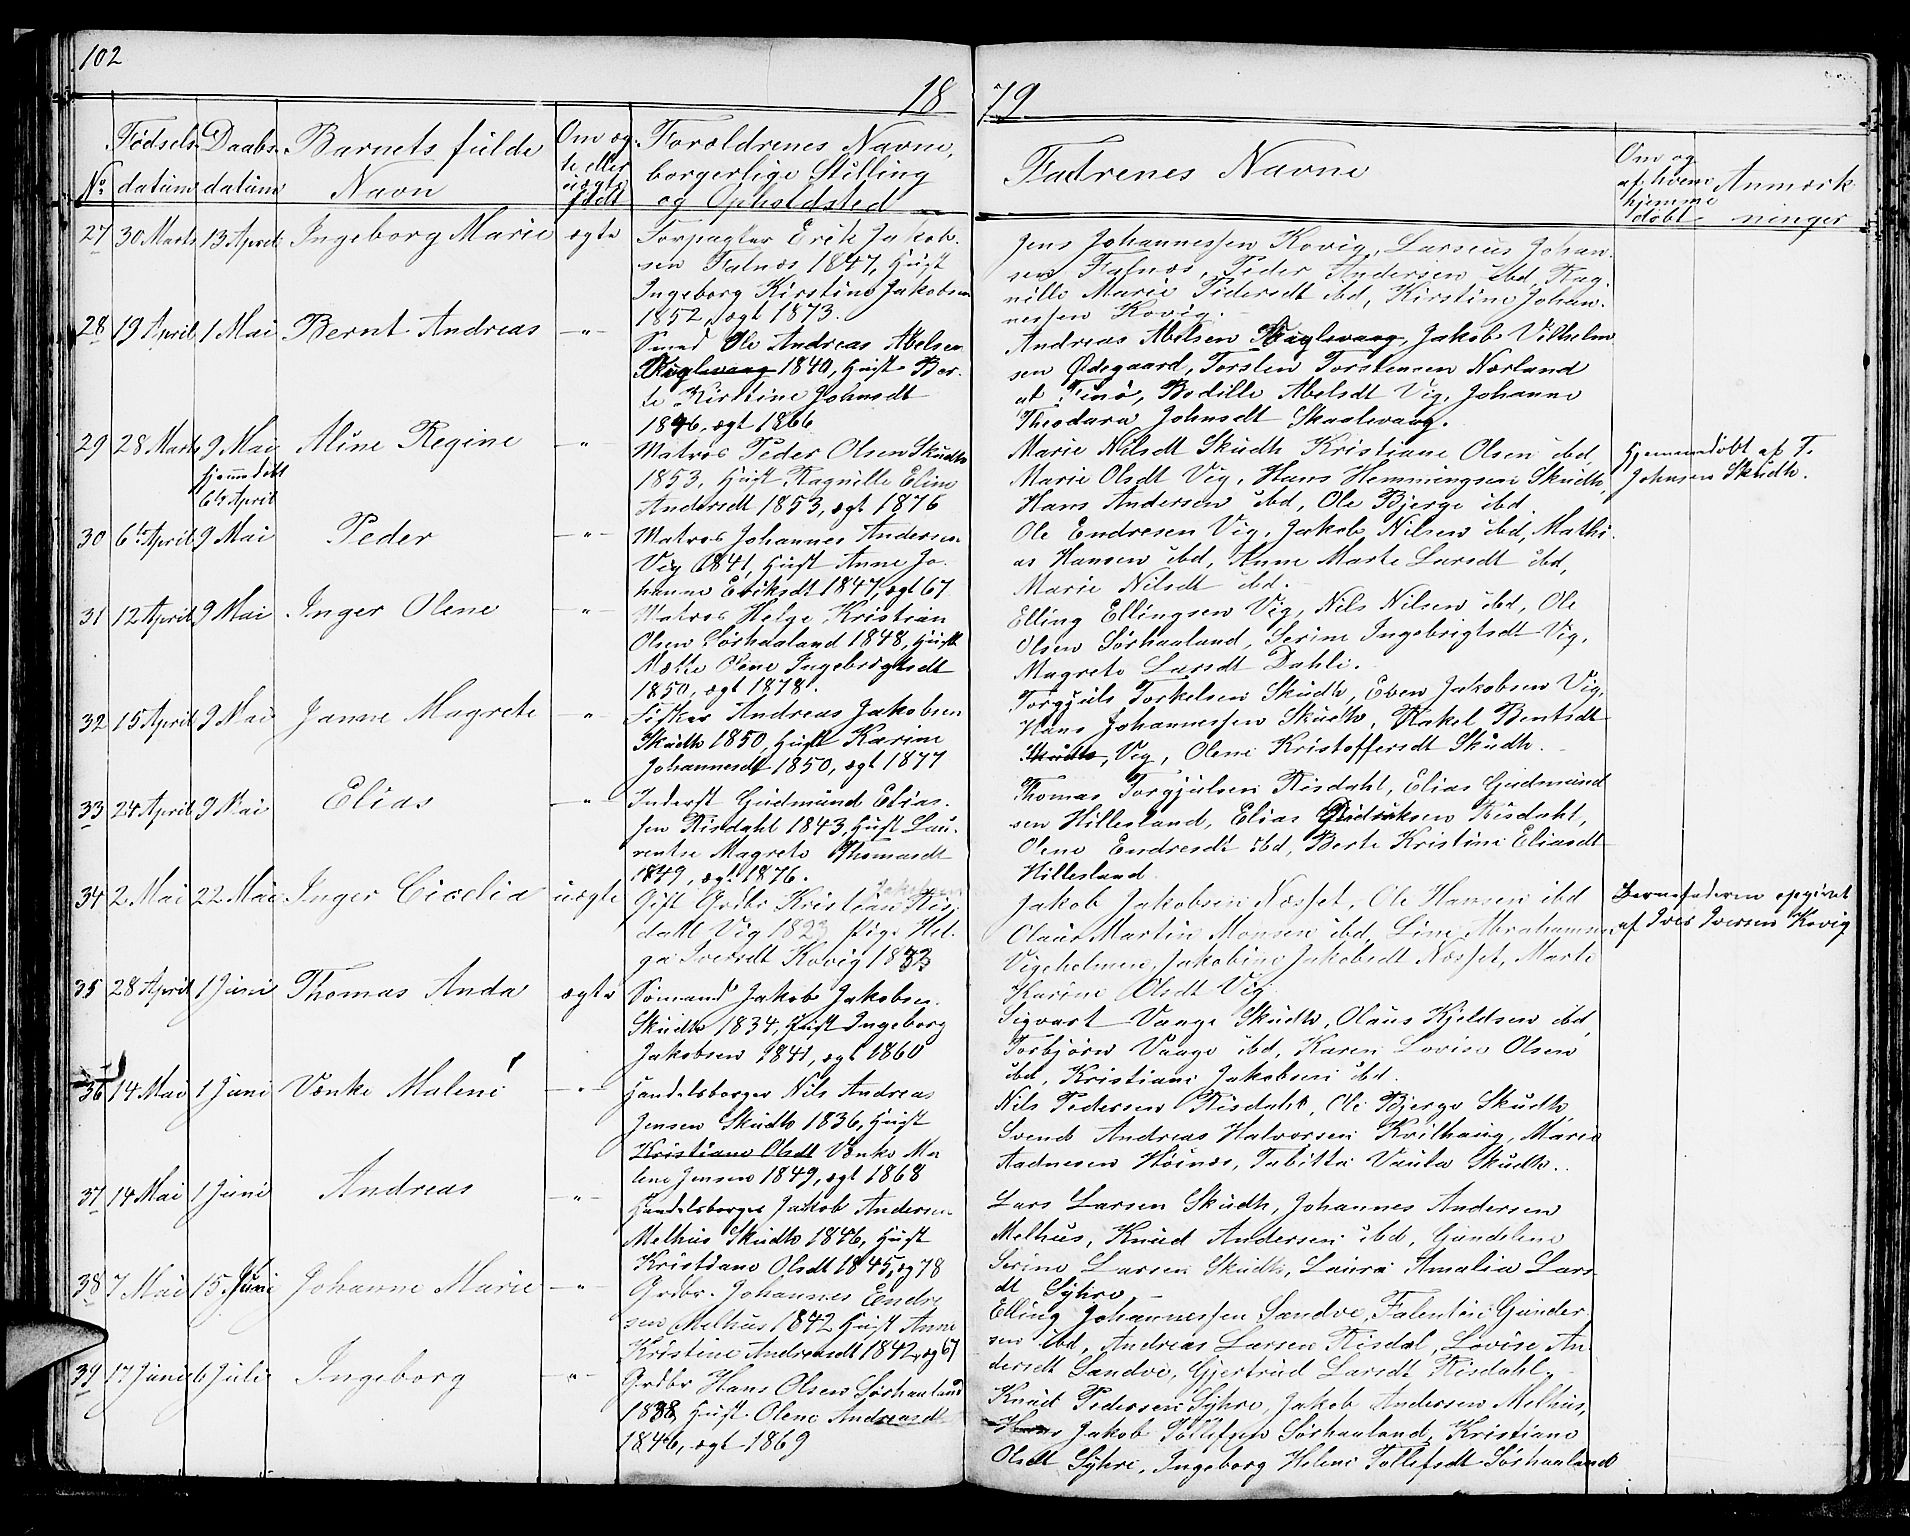 102
18 79
No. Fødsels datum Daabs datum Barnets fulde Navn Om ægte eller uægte født Forældrenes Navne, borgerlige Stilling og Opholdsted Fadrenes Navne Om og af hvem hjemmedøbt Anmærkninger
27 30 Marts 13 April Ingeborg Marie ægte
Forpagter Erik Jakob-
sen Falnæs 1847, Hust
Ingeborg Kirstine Jakobsen
1852, ægt 1873.
Jens Johannessen Kovig, Larseus Johan-
sen Falnæs, Peder Andersen ibd, Rag-
nille Marie Pedersdt ibd, Kirstine Johan-
nessen Kovig.
28 19 April 1 Mai Bernt Andreas -"-
Smed Ole Andreas Abelsen
1840, Hust Ber-
te Kirstine Johnsdt
1846, ægt 1866
Andreas Abelsen Jakob Vilhelm
sen Ødegaard, Torsten Torstensen Nørland
Bodille Abelsdt Vig, Johanne
Theodara Johnsdt
29 28 Marts 9 Mai Aline Regine -"-
Hjemmedøbt
6te April
Matros Peder Olsen Skudh
1853, Hust Ragnille Elene
Andersdt 1853, ægt 1876
Marie Nilsdt Skudh Kristiane Olsen ibd
Marie Olsdt Vig, Hans Hemmingsen Skudh,
Hans Andersen ibd, Ole Bjerge ibd.
Hjemmedøbt af T.
Johnsen Skudh.
30 6te April 9 Mai Peder -"-
Matros Johannes Andersen
Vig 1841, Hust Anne Jo-
hanne Eriksdt 1847, ægt 67
Ole Endresen Vig, Jakob Nilsen ibd, Mathi-
as Hansen ibd, Anne Marte Larsdt ibd,
Marie Nilsdt ibd.
31 12 April 9 Mai Inger Olene -"-
Matros Helge Kristian
Olsen Sørhaaland 1848, Hust
Mætte Olene Ingebrigtsdt
1850, ægt 1878.
Elling Ellingsen Vig, Nils Nilsen ibd, Ole
Olsen Sørhaaland, Serine Ingebrigtsdt Vig,
Magrete Larsdt Dahle.
32 15 April 9 Mai Janne Magrete -"-
Fisker Andreas Jakobsen
Skudh 1850, Hust Karine
Johannesdt 1850, ægt 1877
Torgjuls Torkelsen Skudh, Even Jakobsen Vig,
Hans Johannessen Skudh, Rakel Bentsdt
Skudh, Vig, Olene Kristoffersdt Skudh.
33 24 April 9 Mai Elias -"-
Inderst Gudmund Elias-
sen Risdahl 1843, Hust Lau-
rentse Magrete Thomasdt
1849, ægt 1876.
Thomas Torgjulsen Risdahl, Elias Gudmund
sen Hillesland, Elias Didriksen Risdahl,
Olene Endresdt ibd, Berte Kristine Eliasdt
Hillesland.
34 2 Mai 22 Mai Inger Cicelia uægte
Gift Grdbr Kristian Ris-
dahl Vig 1823 Pige Hel-
ga Iversdt Kovig 1833
Jakob Jakobsen Næsset, Ole Hansen ibd
Olaus Martin Monsen ibd, Line Abrahamsen
Vigeholmen, Jakobine Jakobsdt Næsset, Marte
Karine Olsdt Vig
Barnefaderen opgivet
af Iver Iversen Kovig
35 28 April 1 Juni Thomas Anda ægte
Sømand Jakob Jakobsen
Skudh 1834, Hust Ingeborg
Jakobsen 1841, ægt 1860
Sigvart Vaage Skudh, Olaus Kjeldsen ibd
Torbjørn Vaage ibd, Karen Lovise Olsen
ibd, Kristiane Jakobsen ibd.
36 14 Mai 1 Juni Vænke Malene -"-
Handelsborger Nils Andreas
Jensen Skudh 1836, Hust
Kristiane Olsdt Vænke Ma
lene Jensen 1849, ægt 1868
Nils Pedersen Risdahl, Ole Bjerge Skudh,
Svend Andreas Halvorsen Kvilhaug, Marie
Aadnesen Høinæs, Tabitta Vaula Skudh.
37 14 Mai 1 Juni Andreas -"-
Handelsborger Jakob Andersen
Melhus Skudh 1846, Hust
Kristiane Olsdt 1845, æg 78
Lars Larsen Skudh, Johannes Andersen
Melhus, Knud Andersen ibd, Gundelene
Serine Larsen Skudh, Laura Amalia Lars
dt Syhre.
38 7 Mai 15 Juni Johanne Marie -"-
Grdbr. Johannes Endre
sen Melhus 1842 Hust Anne
Kristine Andreasdt 1842, æg 67
Elling Johannessen Sandve, Falentin Gunder
sen ibd, Andreas Larsen Risdal, Lovise An
dersdt Sandve, Gjertrud Larsdt Risdahl.
39 17 Juni 6 Juli Ingeborg -"-
Grdbr Hans Olsen Sørhaaland
1838, Hust. Olene Andreasdt
1846, ægt 1869
Knud Pedersen Syhre, Jakob Andersen Melhus,
Hans Jakob Tollefsen Sørhaaland, Kristiane
Olsdt Syhre, Ingeborg Helene Tollefsdt Sørhaaland